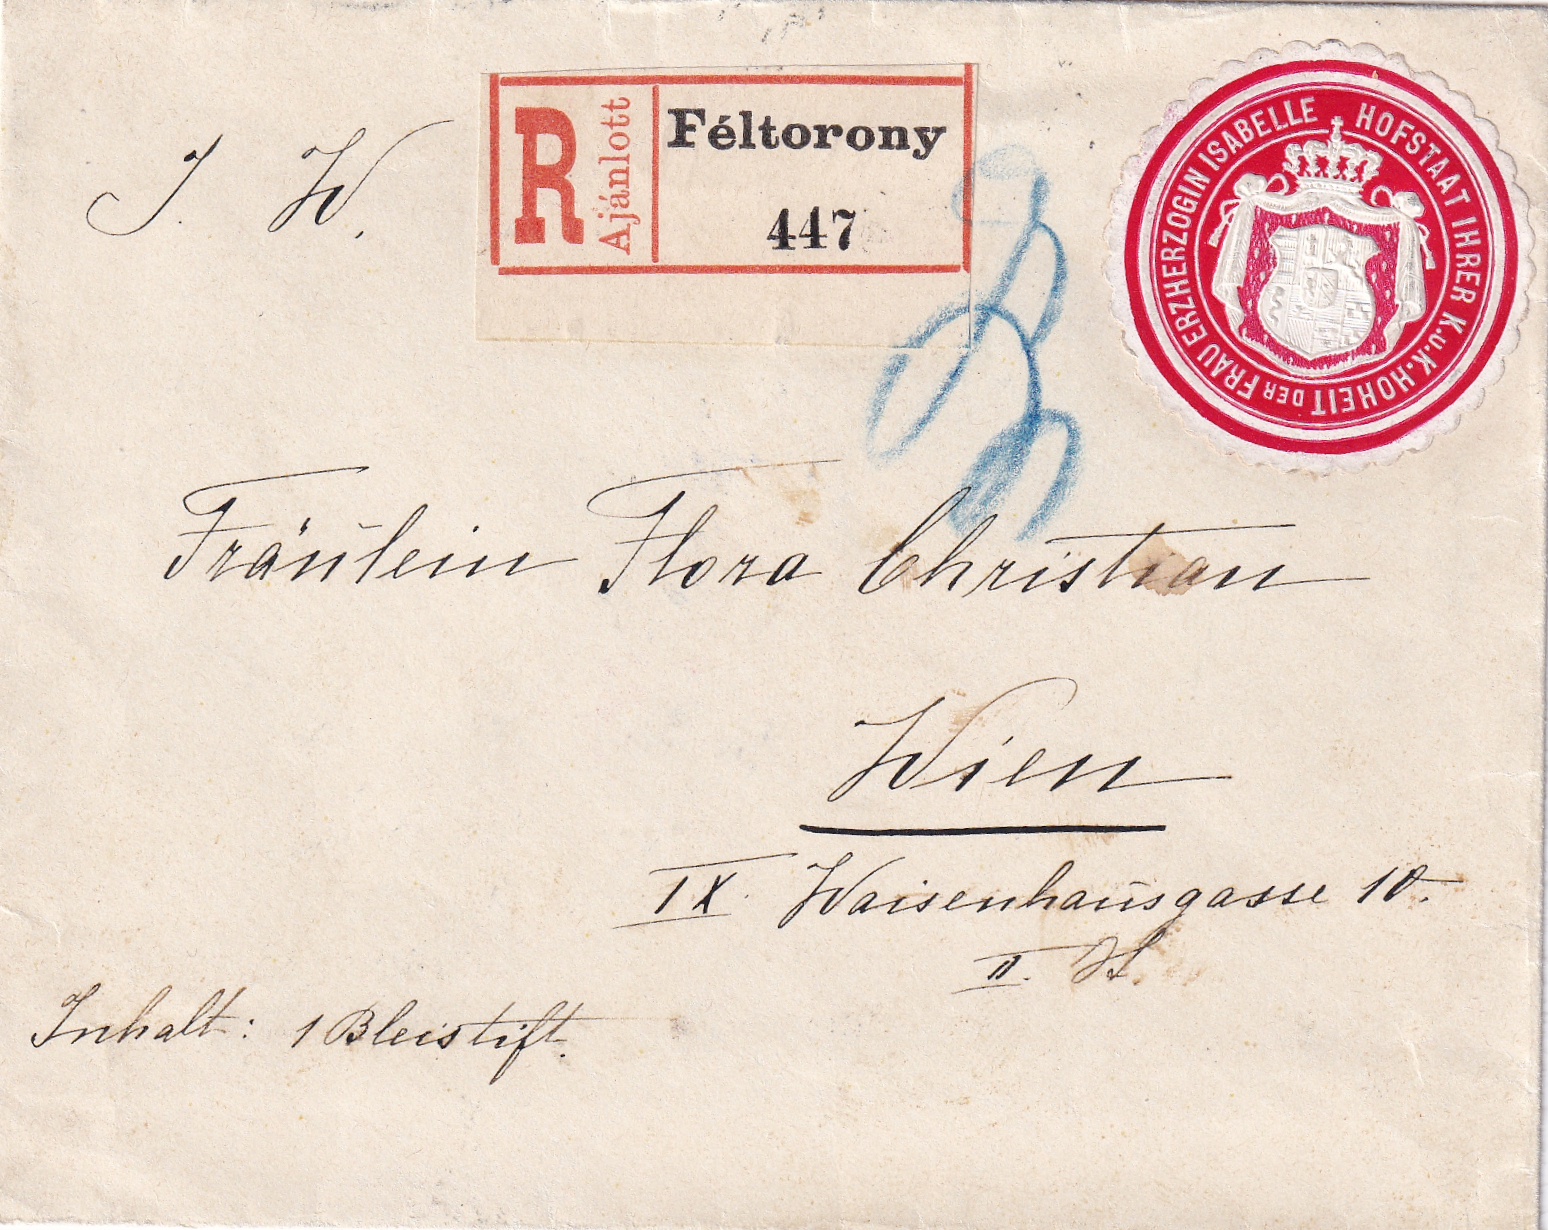 J. W.
R
Ajánlott
Féltorony
447
HOFSTAAT IHRER K.u.K. HOHEIT DER FRAU ERZHERZOGIN ISABELLE
Fräulein Flora Christian
Wien
IX. Waisenhausgasse 10.
II. St.
Inhalt: 1 Bleistift.